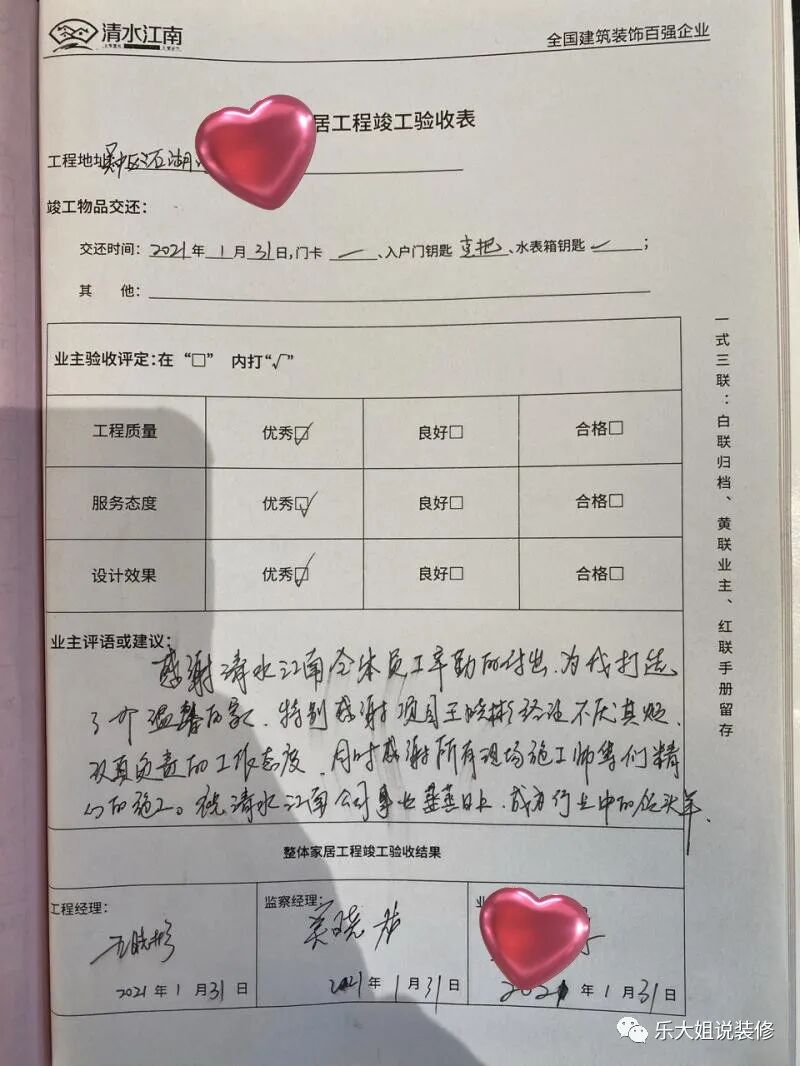 清水江南
全国建筑装饰百强企业
居工程竣工验收表
工程地址 吴中区石湖
竣工物品交还：
交还时间：2021年1月31日，门卡 一、入户门钥匙 壹把、水表箱钥匙 ✓；
其 他：
业主验收评定：在“□”内打“√”
工程质量 优秀☑ 良好□ 合格□
服务态度 优秀☑ 良好□ 合格□
设计效果 优秀☑ 良好□ 合格□
业主评语或建议：
感谢清水江南全体员工辛勤的付出，为我打造
了个温馨的家，特别感谢项目王晓彬经理不厌其烦，
认真负责的工作态度，同时感谢所有现场施工师傅们精
心的施工。祝清水江南公司事业蒸蒸日上，成为行业中的领头羊。
整体家居工程竣工验收结果
工程经理：
王晓彬
2021年1月31日
监察经理：
2021年1月31日
业
2021年1月31日
一式三联：白联归档、黄联业主、红联手册留存
乐大姐说装修